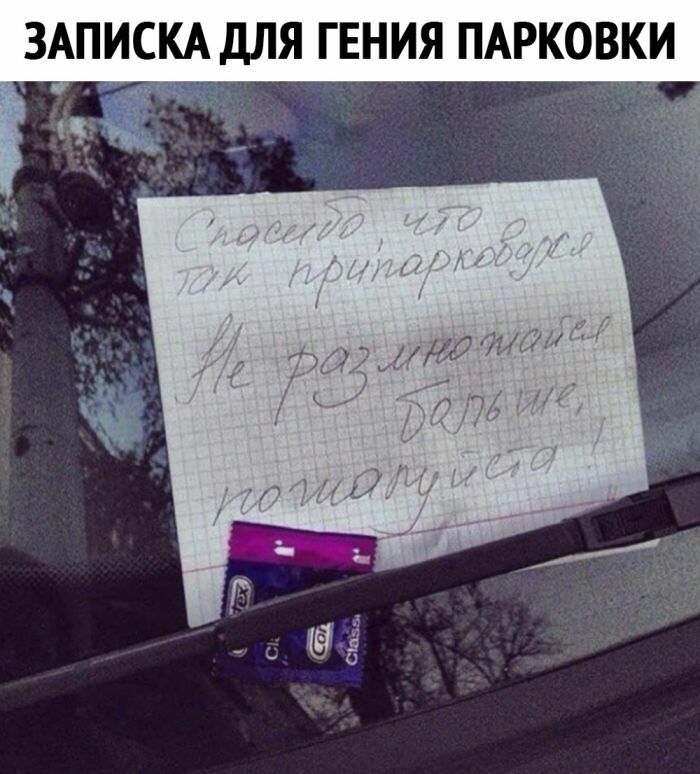 ЗАПИСКА ДЛЯ ГЕНИЯ ПАРКОВКИ
Спасибо, что
так припарковался
Не размножайся
больше,
пожалуйста!
Classi
Con